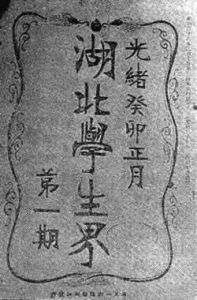 光緒癸卯正月
湖北學生界
第一期